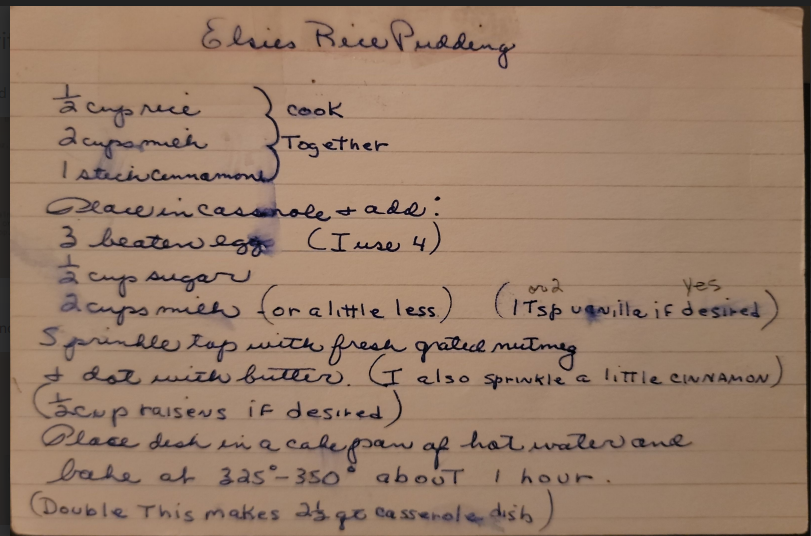 Elsies Rice Pudding
1/2 cup rice } cook
2 cups milk } Together
1 stick cinnamon
Place in casserole & add:
3 beaten eggs (I use 4)
1/2 cup sugar
or 2 yes
2 cups milk (or a little less) (1 Tsp vanilla if desired)
Sprinkle top with fresh grated nutmeg
& dot with butter. (I also sprinkle a little CINNAMON)
(1/2 cup raisens if desired)
Place dish in a cake pan of hot water and
bake at 325°-350° about 1 hour.
(Double This makes 2½ qt casserole dish)